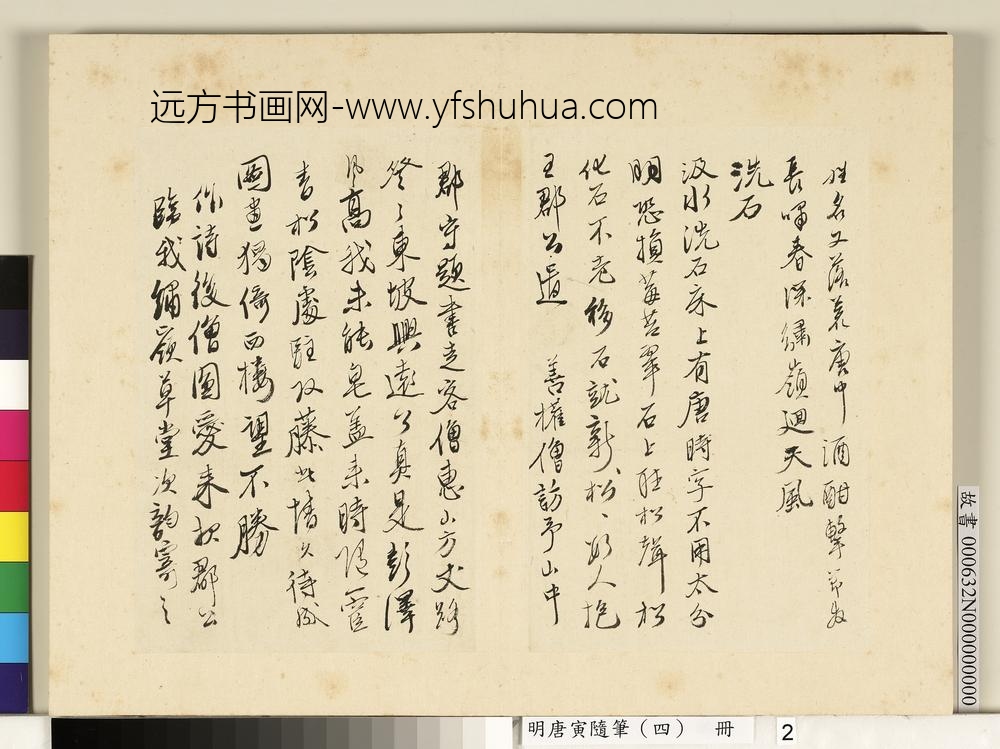 远方书画网-www.yfshuhua.com
姓名又落 庚中 酒酣擊
長嘯春深繡嶺迴天風
洗石
汲水洗石床上有唐時字不用太分
明恐損莓苔翠石上 松聲松
化石不老移石就新松松 人抱
王郡公遺 善權僧訪予山中
郡守題書走客僧惠山方丈
登 東坡興遠公真是彭澤
風高我未能皂蓋來時
青松陰處駐 藤此情久待
圖畫獨倚西樓望不勝
作詩後僧圖愛來 郡公
臨我繡嶺草堂次韵寄之
故書 000632N000000000
明唐寅隨筆（四） 冊 2